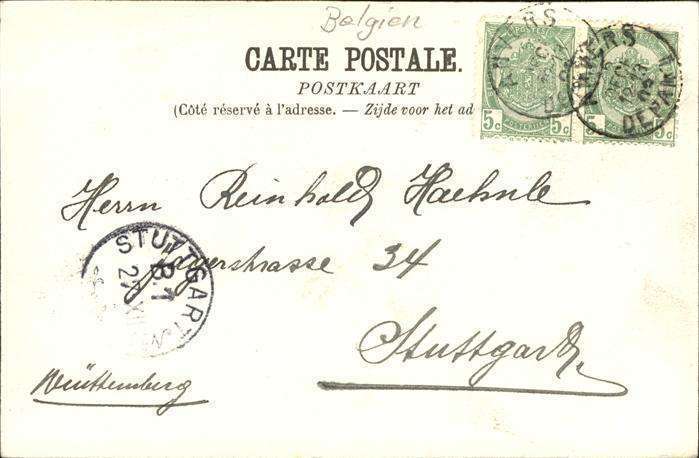 Belgien
CARTE POSTALE.
POSTKAART
(Côté réservé à l'adresse. — Zijde voor het ad
5c 5c 5c 5c
ANVERS
DEPART
ANVERS
DEPART
Herrn Reinhold Haehnle
Jägerstrasse 34
Stuttgard
Württemberg
STUTTGART
B.1
27 XII